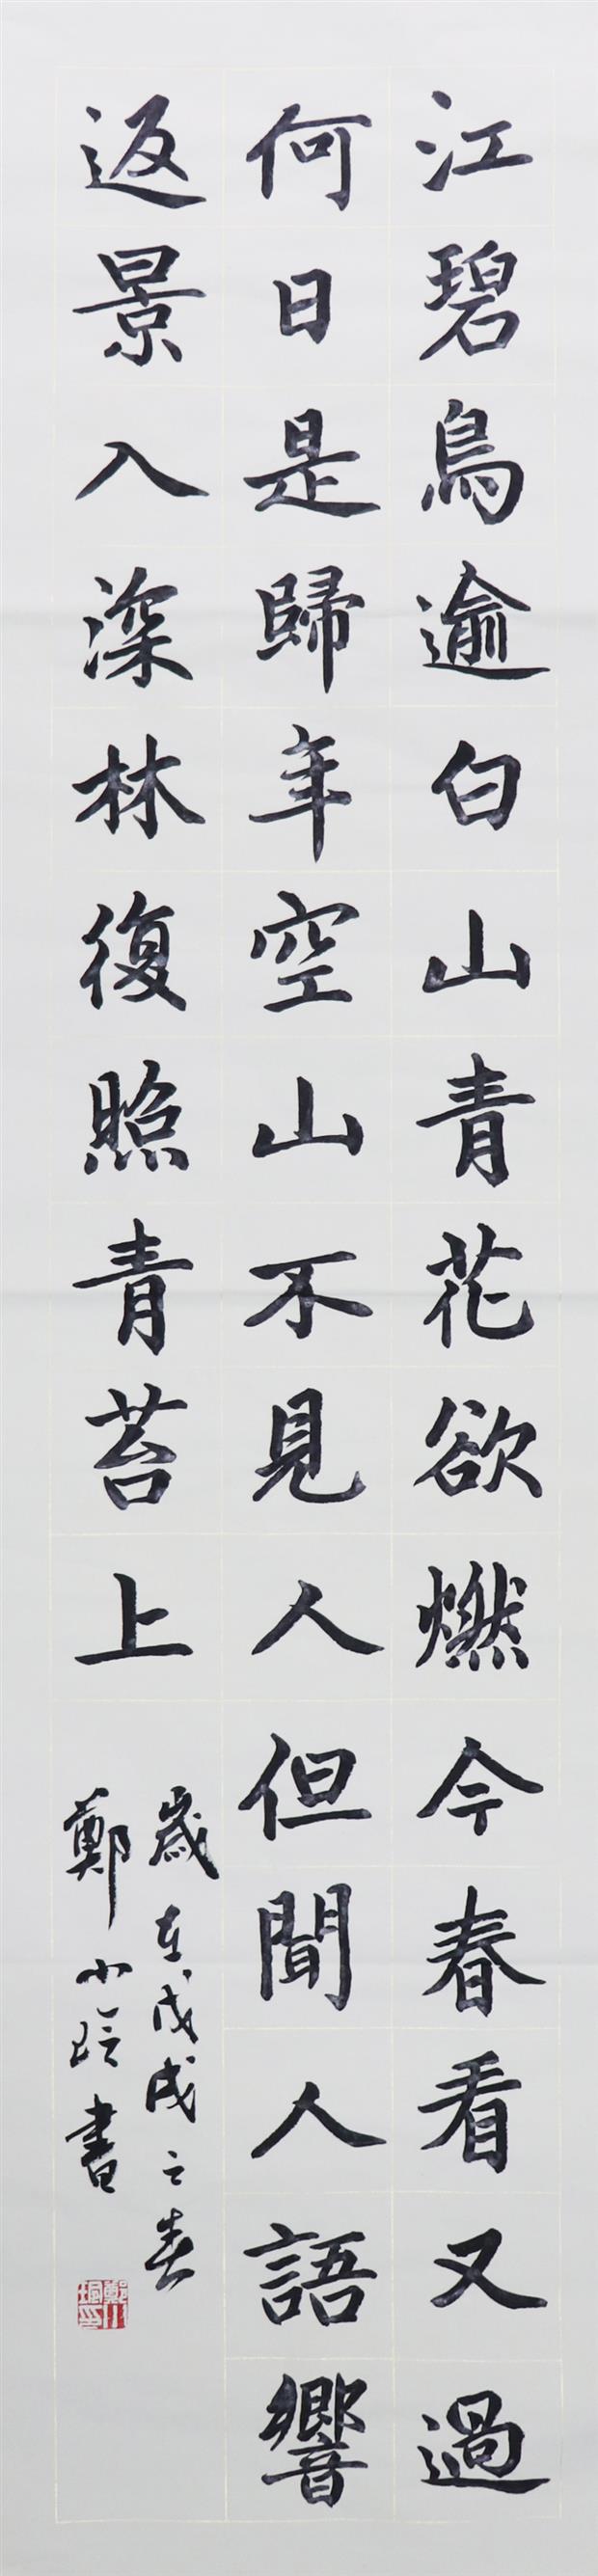 江碧鳥逾白山青花欲燃今春看又過
何日是歸年空山不見人但聞人語響
返景入深林復照青苔上
歲在戊戌之春
鄭小玲書